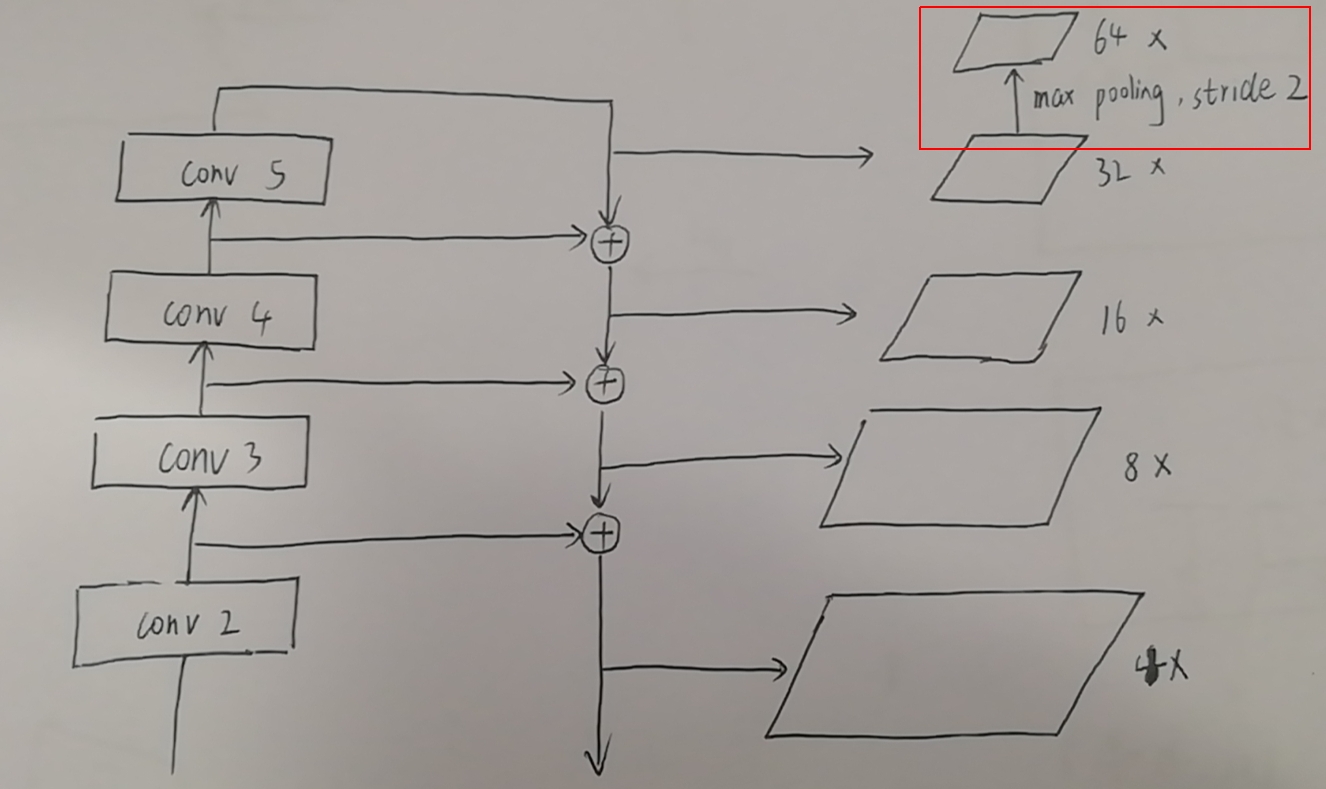 64 x
max pooling, stride 2
conv 5
32 x
conv 4
16 x
conv 3
8 x
conv 2
4x